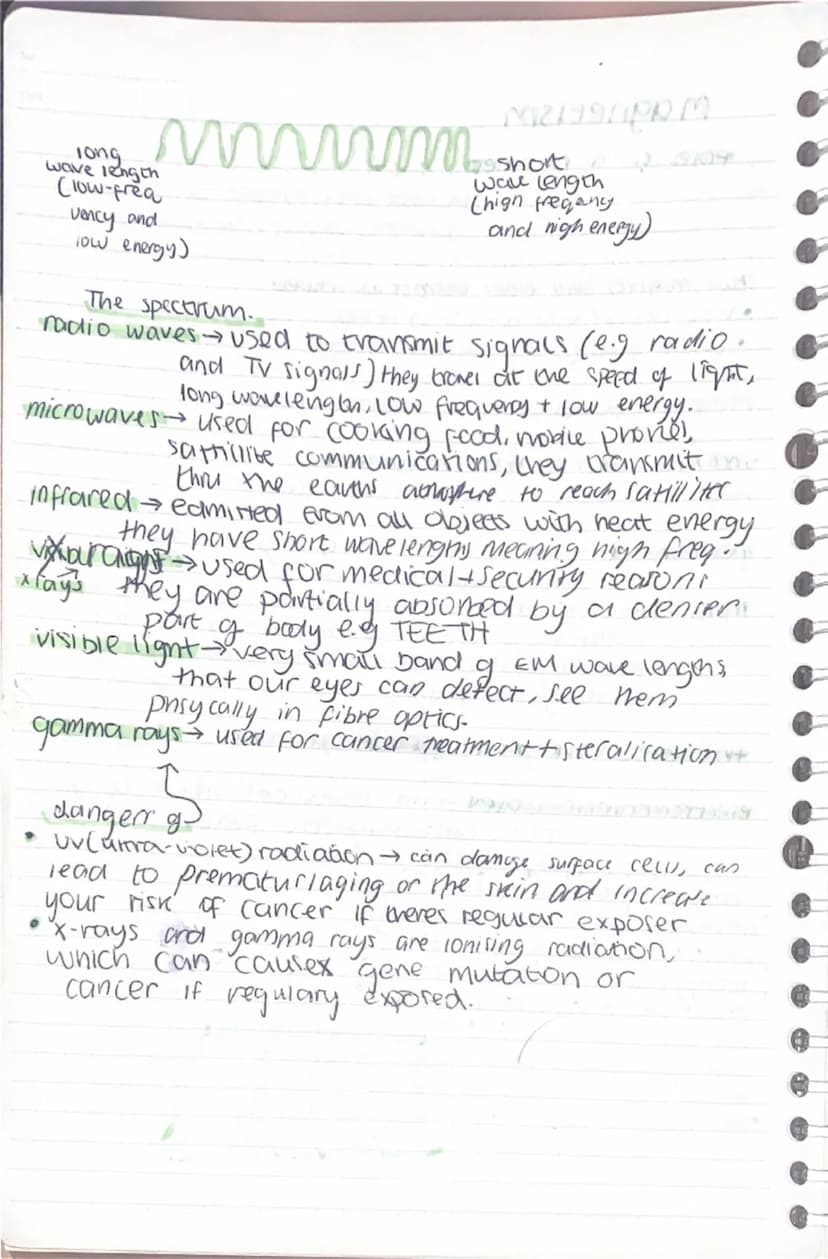 long
wave length
(low-freq
uency and
low energy)
short
wave length
(high freqency
and high energy)
The spectrum.
radio waves → used to transmit signals (e.g radio
and TV signals) they travel at the speed of light,
long wavelength, low frequency + low energy.
microwaves → used for cooking food, mobile phones,
satillite communications, they transmit
thru the earths atmosphere to reach satillites
infrared → edmitted from all objects with heat energy
they have short wavelengths meaning high freq.
x rays → used for medical + security reasons
they are partially absorbed by a denser
part of body e.g TEETH
visible light → very small band of EM wave lengths
that our eyes can detect, see them
physycally in fibre optics.
gamma rays → used for cancer treatment + steralisation
dangers of
• UV (ultra-violet) radiation → can damage surface cells, can
lead to prematuriaging or the skin and increase
your risk of cancer if theres regular exposer
• x-rays and gamma rays are ionising radiation,
which can cause gene mutation or
cancer if regulary exposed.
Magnetism